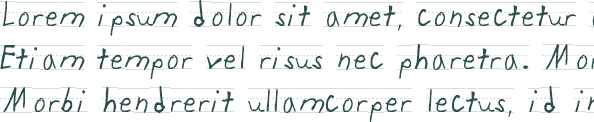 Lorem ipsum dolor sit amet, consectetur
Etiam tempor vel risus nec pharetra.
Morbi hendrerit ullamcorper lectus, id